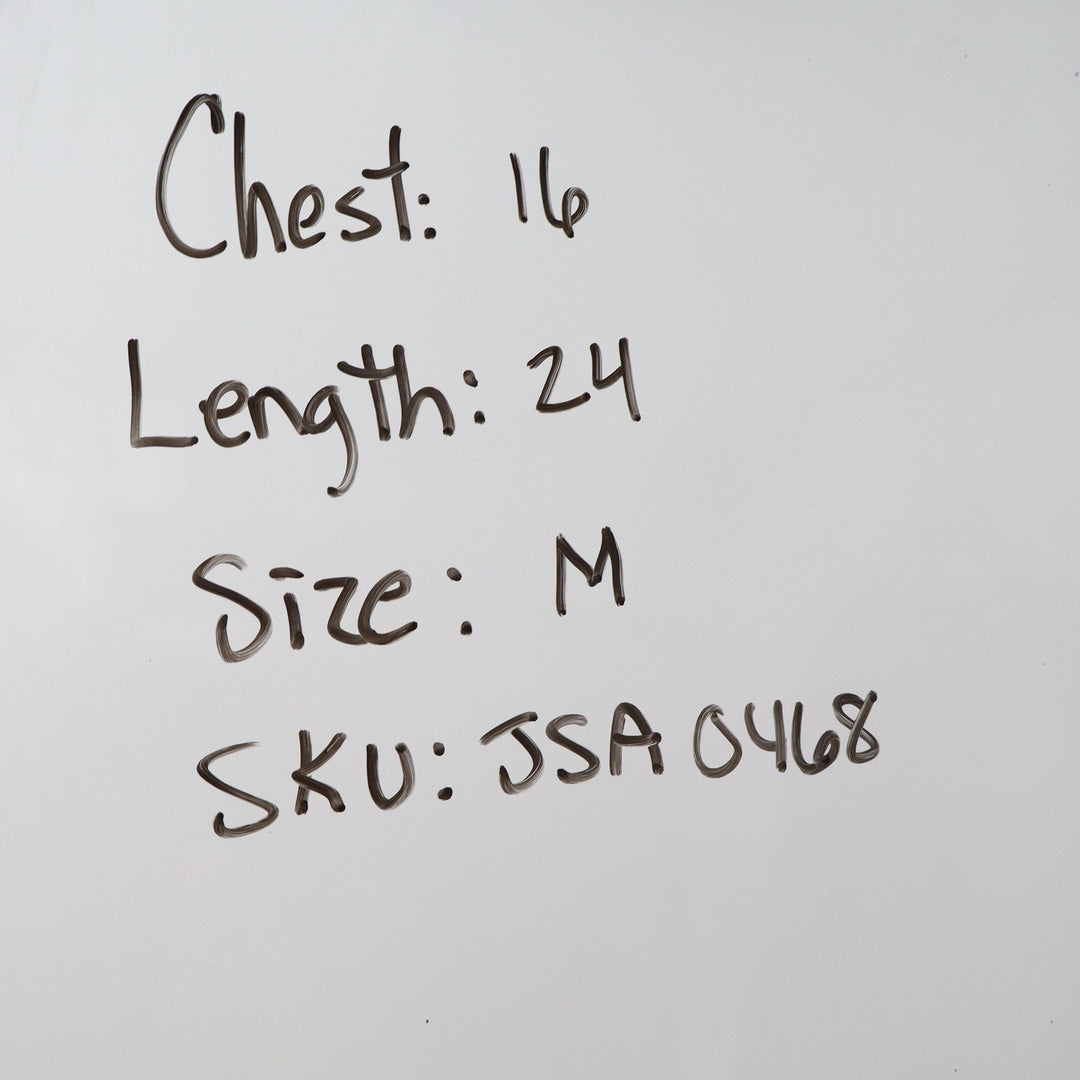 Chest: 16
Length: 24
Size: M
SKU: JSA 0468